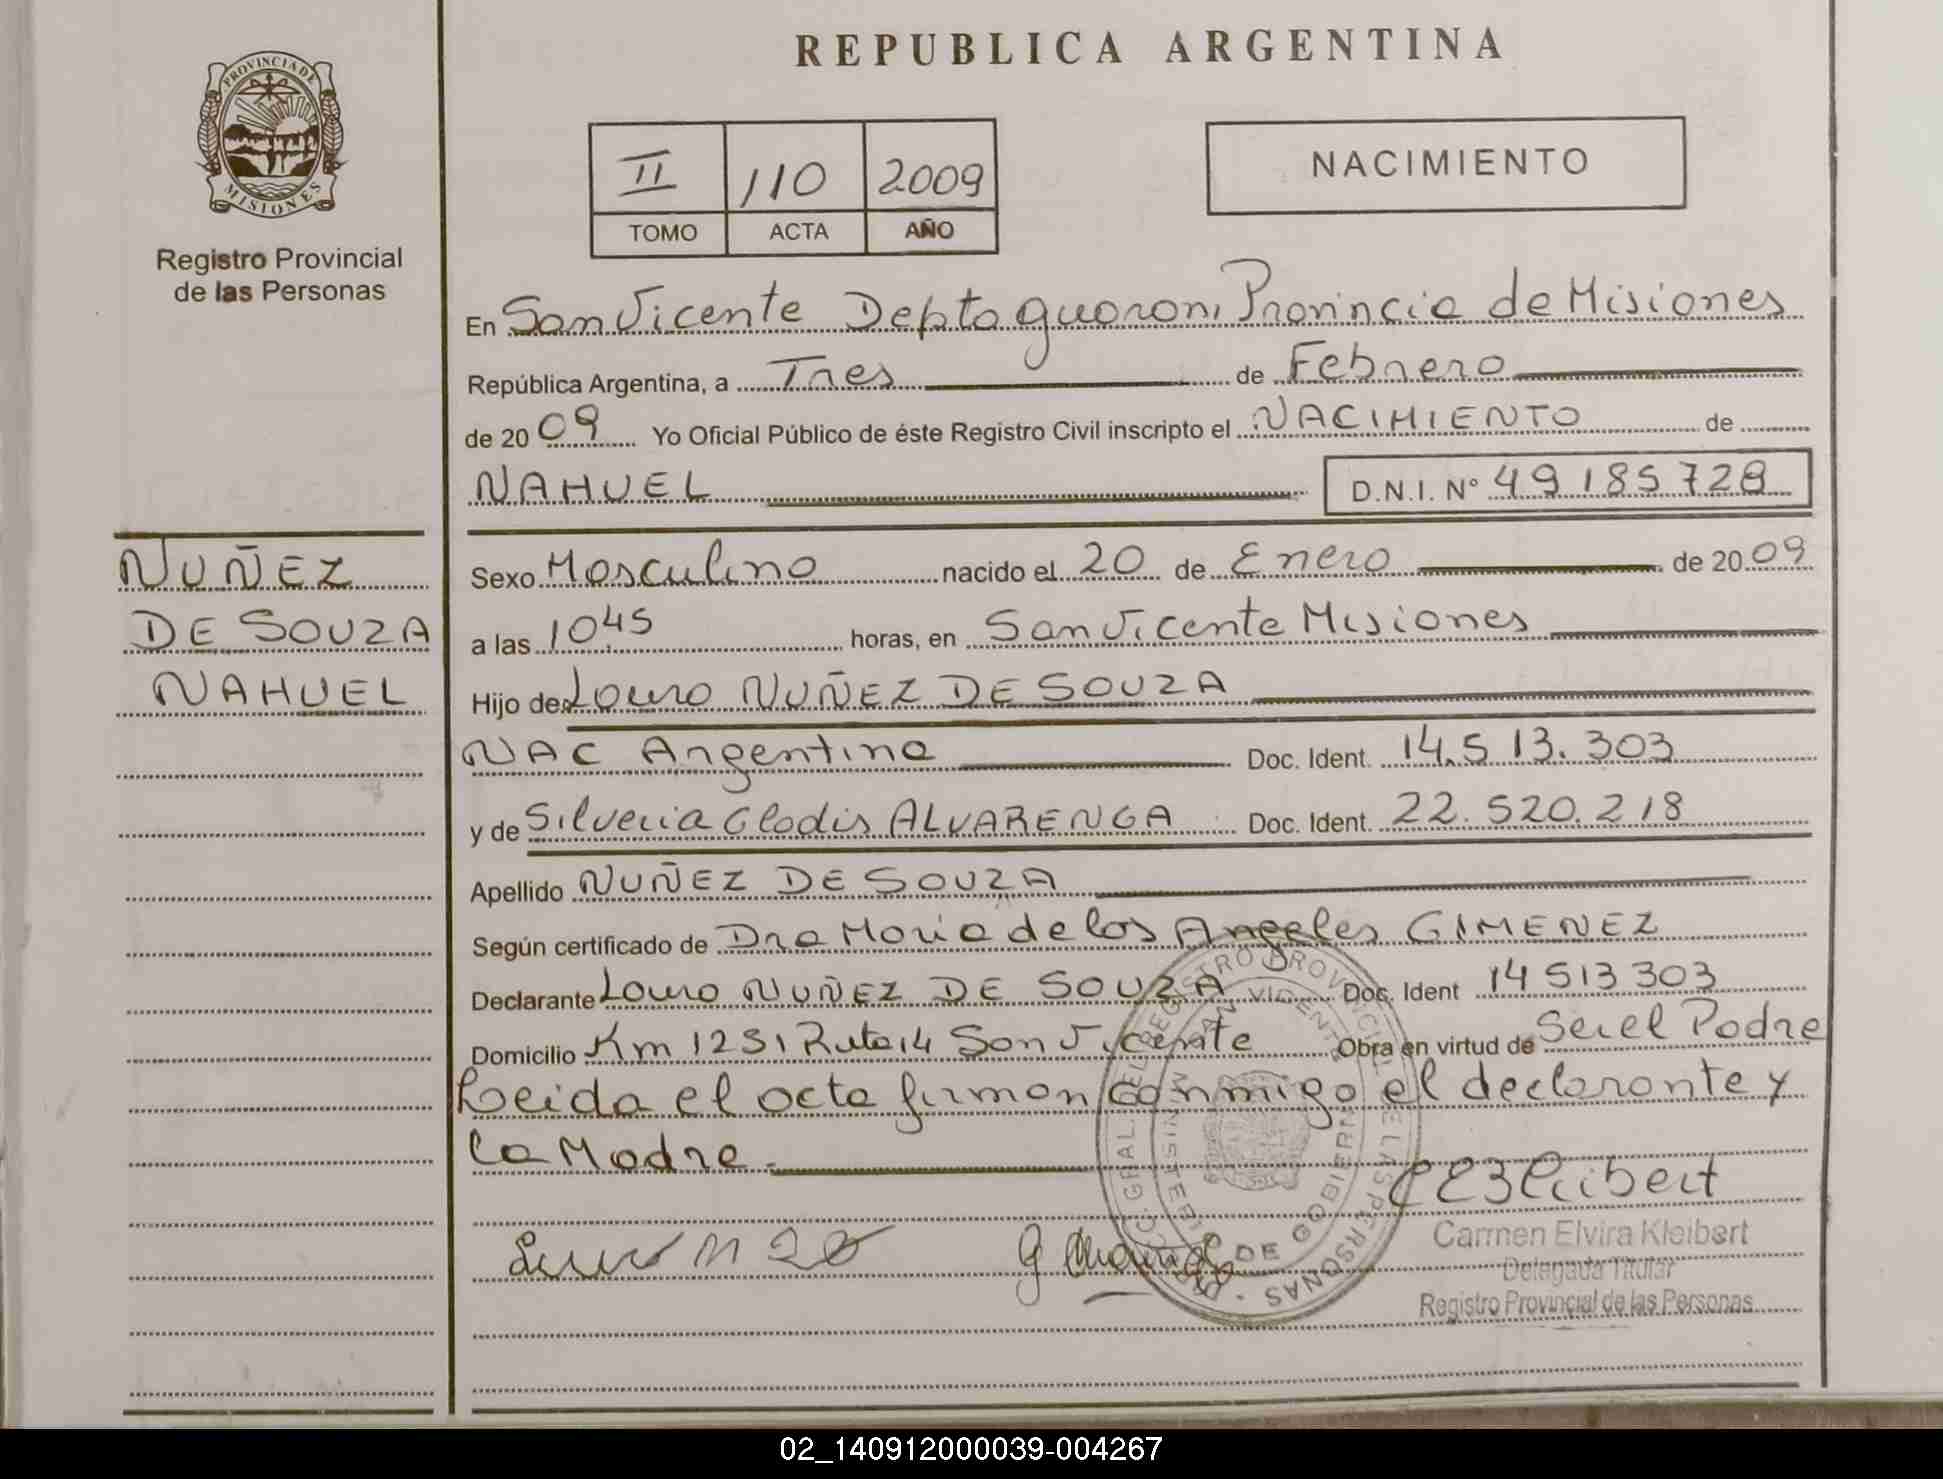 REPUBLICA ARGENTINA
PROVINCIA DE
MISIONES
Registro Provincial
de las Personas
II 110 2009
TOMO ACTA AÑO
NACIMIENTO
En San Vicente Depto guaroni Provincia de Misiones
República Argentina, a Tres de Febrero
de 20 09 Yo Oficial Público de éste Registro Civil inscripto el NACIMIENTO de
NAHUEL D.N.I. N° 49185728
NUÑEZ
DE SOUZA
NAHUEL
Sexo Masculino nacido el 20 de Enero de 20 09
a las 10,45 horas, en San Vicente Misiones
Hijo de Lauro NUÑEZ DE SOUZA
NAC Argentina Doc. Ident. 14.513.303
y de Silveria Gladis ALVARENGA Doc. Ident. 22.520.218
Apellido NUÑEZ DE SOUZA
Según certificado de Dra Maria de los Angeles GIMENEZ
Declarante Lauro NUÑEZ DE SOUZA Doc. Ident 14 513 303
Domicilio Km 1231 Ruta 14 San Vicente Obra en virtud de Ser el Padre
Leida el acta firman conmigo el declarante y
la Madre.
Carmen Elvira Kleibert
Delegada Titular
Registro Provincial de las Personas
02_140912000039-004267